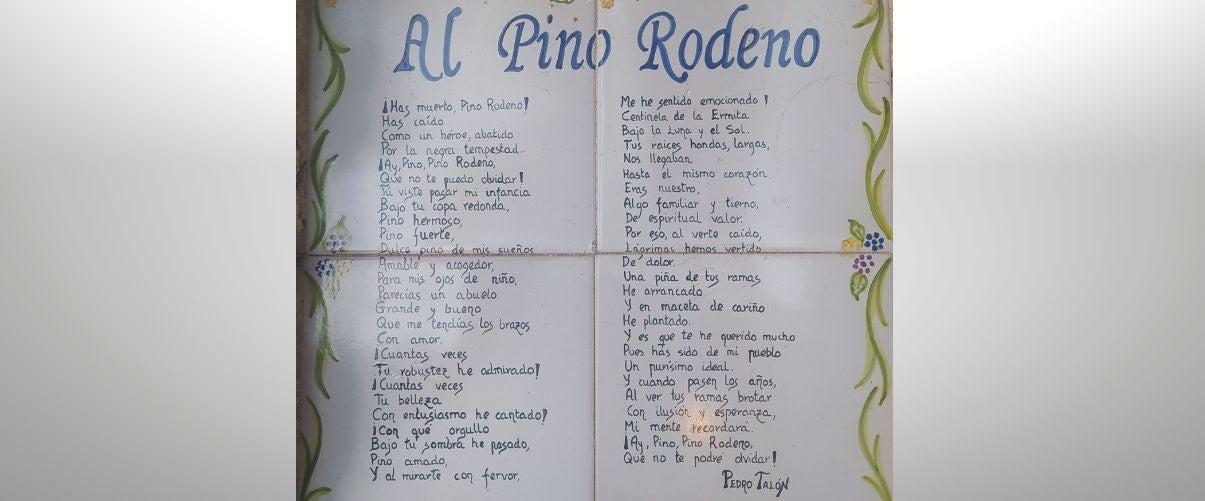 Al Pino Rodeno
¡Has muerto, Pino Rodeno!
Has caído
Como un héroe, abatido
Por la negra tempestad..
¡Ay, Pino, Pino Rodeno,
Que no te puedo olvidar!
Tú viste pasar mi infancia
Bajo tu copa redonda,
Pino hermoso,
Pino fuerte,
Dulce pino de mis sueños
Amable y acogedor,
Para mis ojos de niño,
Parecías un abuelo
Grande y bueno
Que me tendías los brazos
Con amor.
¡Cuantas veces
Tu robustez he admirado!
¡Cuantas veces
Tu belleza
Con entusiasmo he cantado!
¡Con qué orgullo
Bajo tu sombra he pasado,
Pino amado,
Y al mirarte con fervor,
Me he sentido emocionado!
Centinela de la Ermita
Bajo la Luna y el Sol.
Tus raices hondas, largas,
Nos llegaban
Hasta el mismo corazón.
Eras nuestro,
Algo familiar y tierno,
De espiritual valor.
Por eso, al verte caído,
Lágrimas hemos vertido
De dolor.
Una piña de tus ramas
He arrancado
Y en maceta de cariño
He plantado.
Y es que te he querido mucho
Pues has sido de mi pueblo
Un purísimo ideal.
Y cuando pasen los años,
Al ver tus ramas brotar
Con ilusión y esperanza,
Mi mente recordará.
¡Ay, Pino, Pino Rodeno,
Que no te podré olvidar!
PEDRO TALÓN